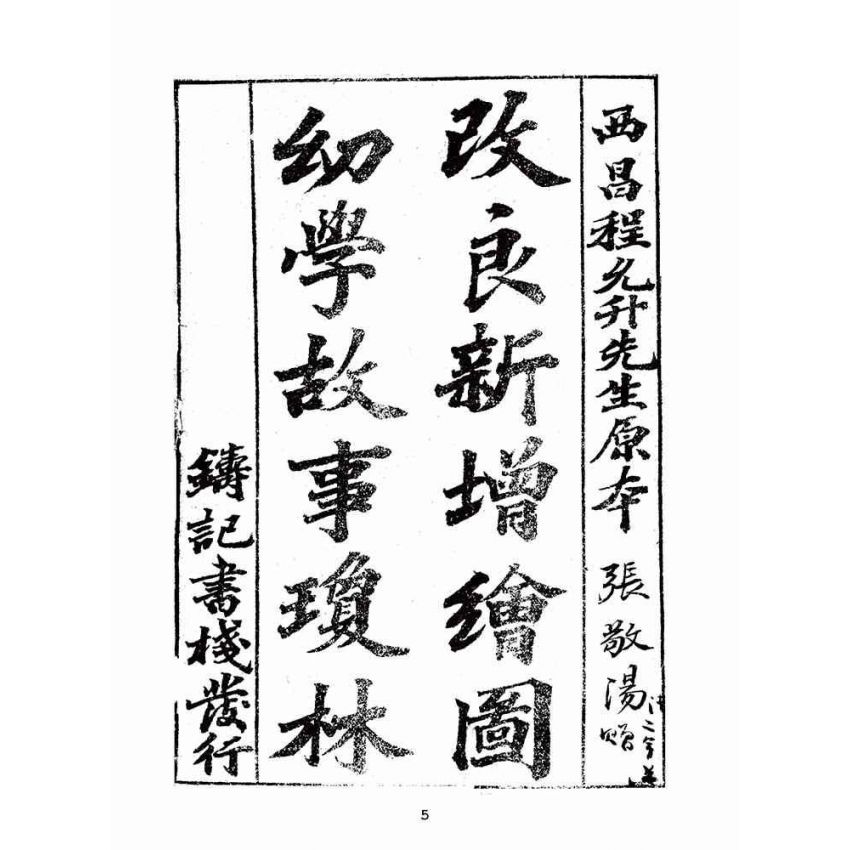 西昌程允升先生原本
張敬湯贈
改良新增繪圖
幼學故事瓊林
鑄記書棧發行
5